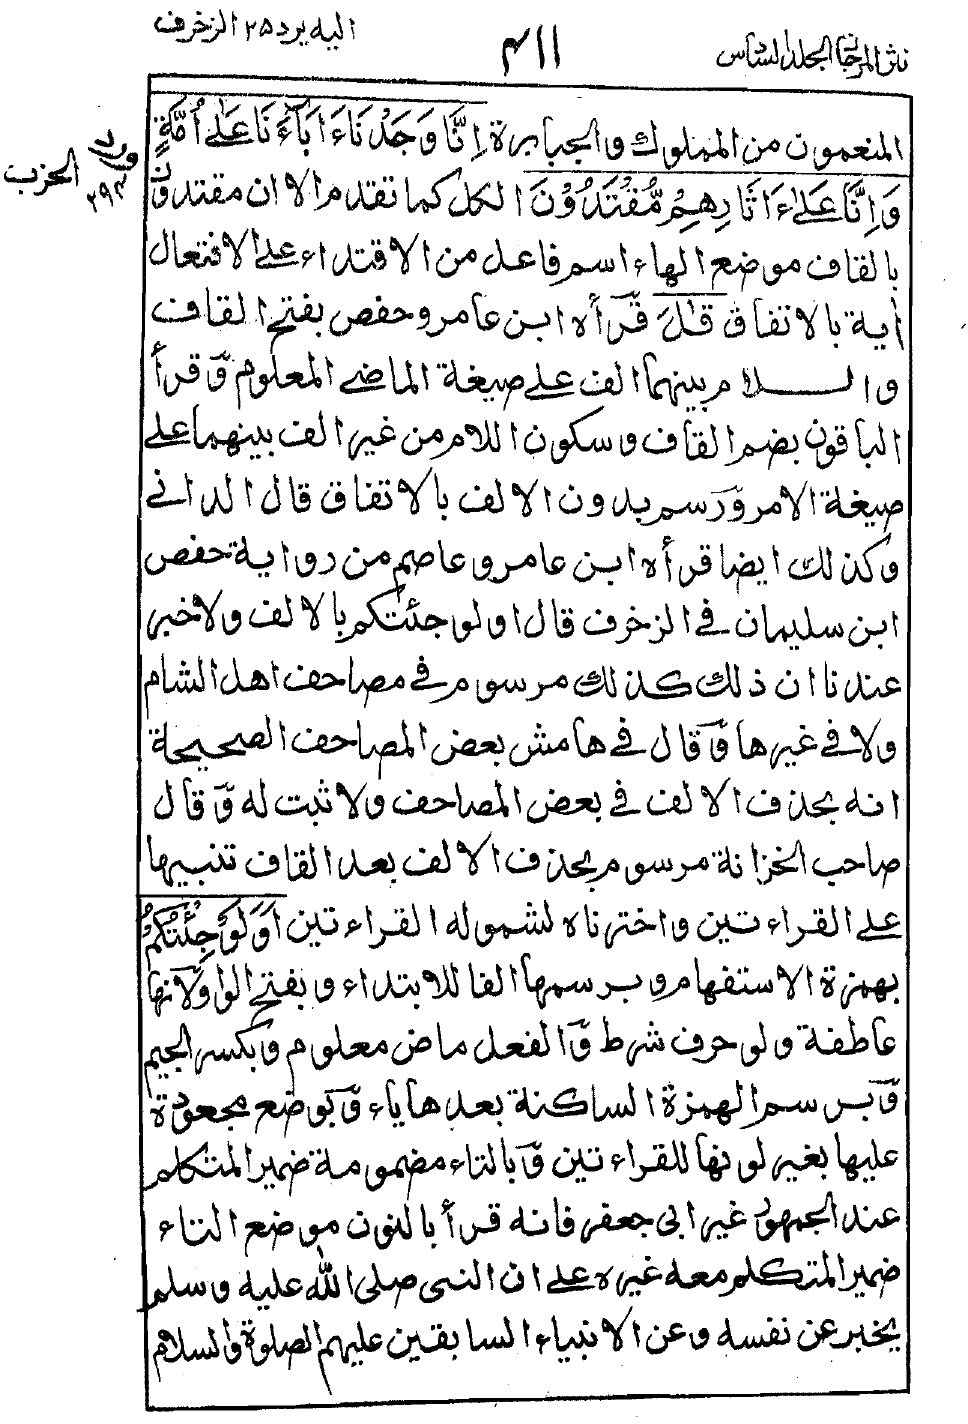 اليه يرد ٢٥ الزخرف
٤١١
نثر المرجان المجلد السادس
المنعمون من الملوك والجبابرة اِنَّا وَجَدْنَاءَ ابَآءَنَا عَلٰے اُمَّةٍ
وَاِنَّا عَلٰے ءَاثَارِهِمْ مُّقْتَدُوْنَ الكل كما تقدم الا ان مقتدون
بالقاف موضع الهاء اسم فاعل من الاقتداء على الافتعال
اية بالاتفاق قٰلَ قرأه ابن عامر وحفص بفتح القاف
واللام بينهما الف على صيغة الماضے المعلوم وقرأ
الباقون بضم القاف وسكون اللام من غير الف بينهما على
صيغة الامر ورسم بدون الالف بالاتفاق قال الدانے
وكذلك ايضا قرأه ابن عامر وعاصم من رواية حفص
ابن سليمان فے الزخرف قال اولو جئتكم بالالف ولا خبر
عندنا ان ذلك كذلك مرسوم فے مصاحف اهل الشام
ولا فے غيرها وقال فے هامش بعض المصاحف الصحيحة
انه بحذف الالف فے بعض المصاحف ولا ثبت له وقال
صاحب الخزانة مرسوم بحذف الالف بعد القاف تنبيها
على القراءتين واخترناه لشموله القراءتين اَوَلَوْ جِئْتُكُمْ
بهمزة الاستفهام وبرسمها الفا للابتداء وبفتح الواو لانها
عاطفة ولو حرف شرط والفعل ماض معلوم وبكسر الجيم
وبرسم الهمزة الساكنة بعدها ياء وبوضع مجعودة
عليها بغير لونها للقراءتين وبالتاء مضمومة ضمير المتكلم
عند الجمهور غير ابى جعفر فانه قرأ بالنون موضع التاء
ضمير المتكلم معه غيره على ان النبى صلى الله عليه وسلم
يخبر عن نفسه وعن الانبياء السابقين عليهم الصلوة والسلام
الحزب